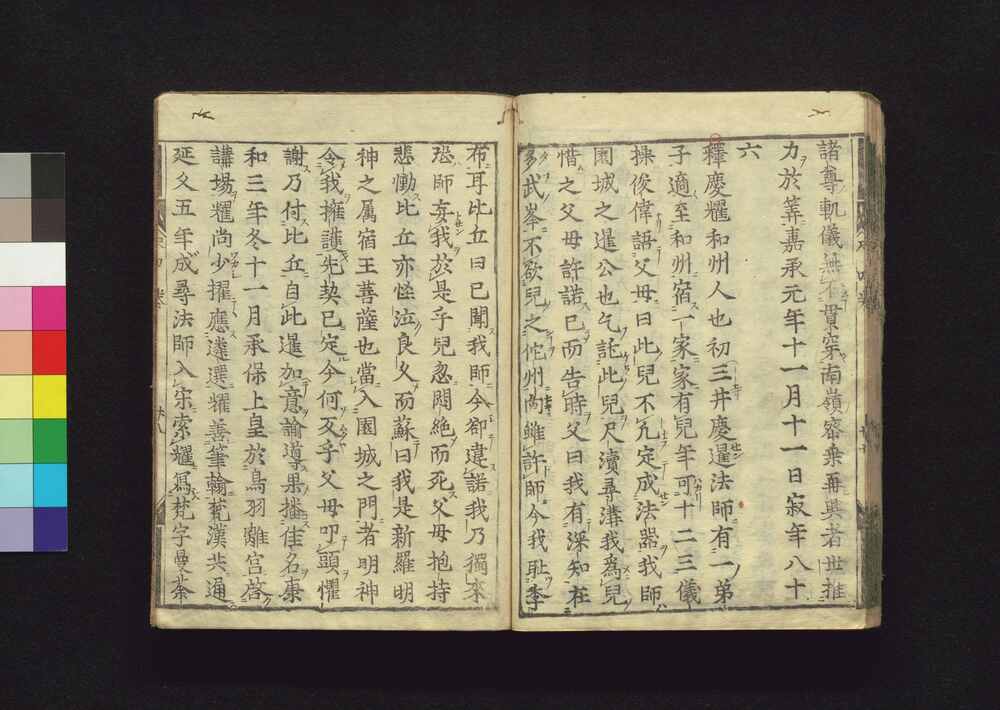 諸尊軌儀無不貫穿南嶺密乗再興者世推
力於筭嘉承元年十一月十一日寂年八十
六
釋慶耀和州人也初三井慶暹法師有一弟
子適至和州宿一家家有兒年可十二三儀
操俊偉語父母曰此兒不凢定成法器我師
園城之暹公也乞託此兒尺瀆尋溝我爲兒
惜之父母許諾已而告時父曰我有深知在
多武峯不欲兒之佗州尚雖許師今我耻季
布耳比丘曰已聞我師今卻違諾我乃獨來
恐師妄我於是乎兒忽悶絶而死父母抱持
悲慟比丘亦恠泣良久而蘇曰我是新羅明
神之属宿王菩薩也當入園城之門者明神
令我擁護先契已定今何叉乎父母叩頭懼
謝乃付比丘自此暹加意論導果播佳名康
和三年冬十一月承保上皇於鳥羽離宮啓
講場耀尚少擢應遴選耀善筆翰梵漢共通
延久五年成尋法師入宋索耀寫梵字曼荼